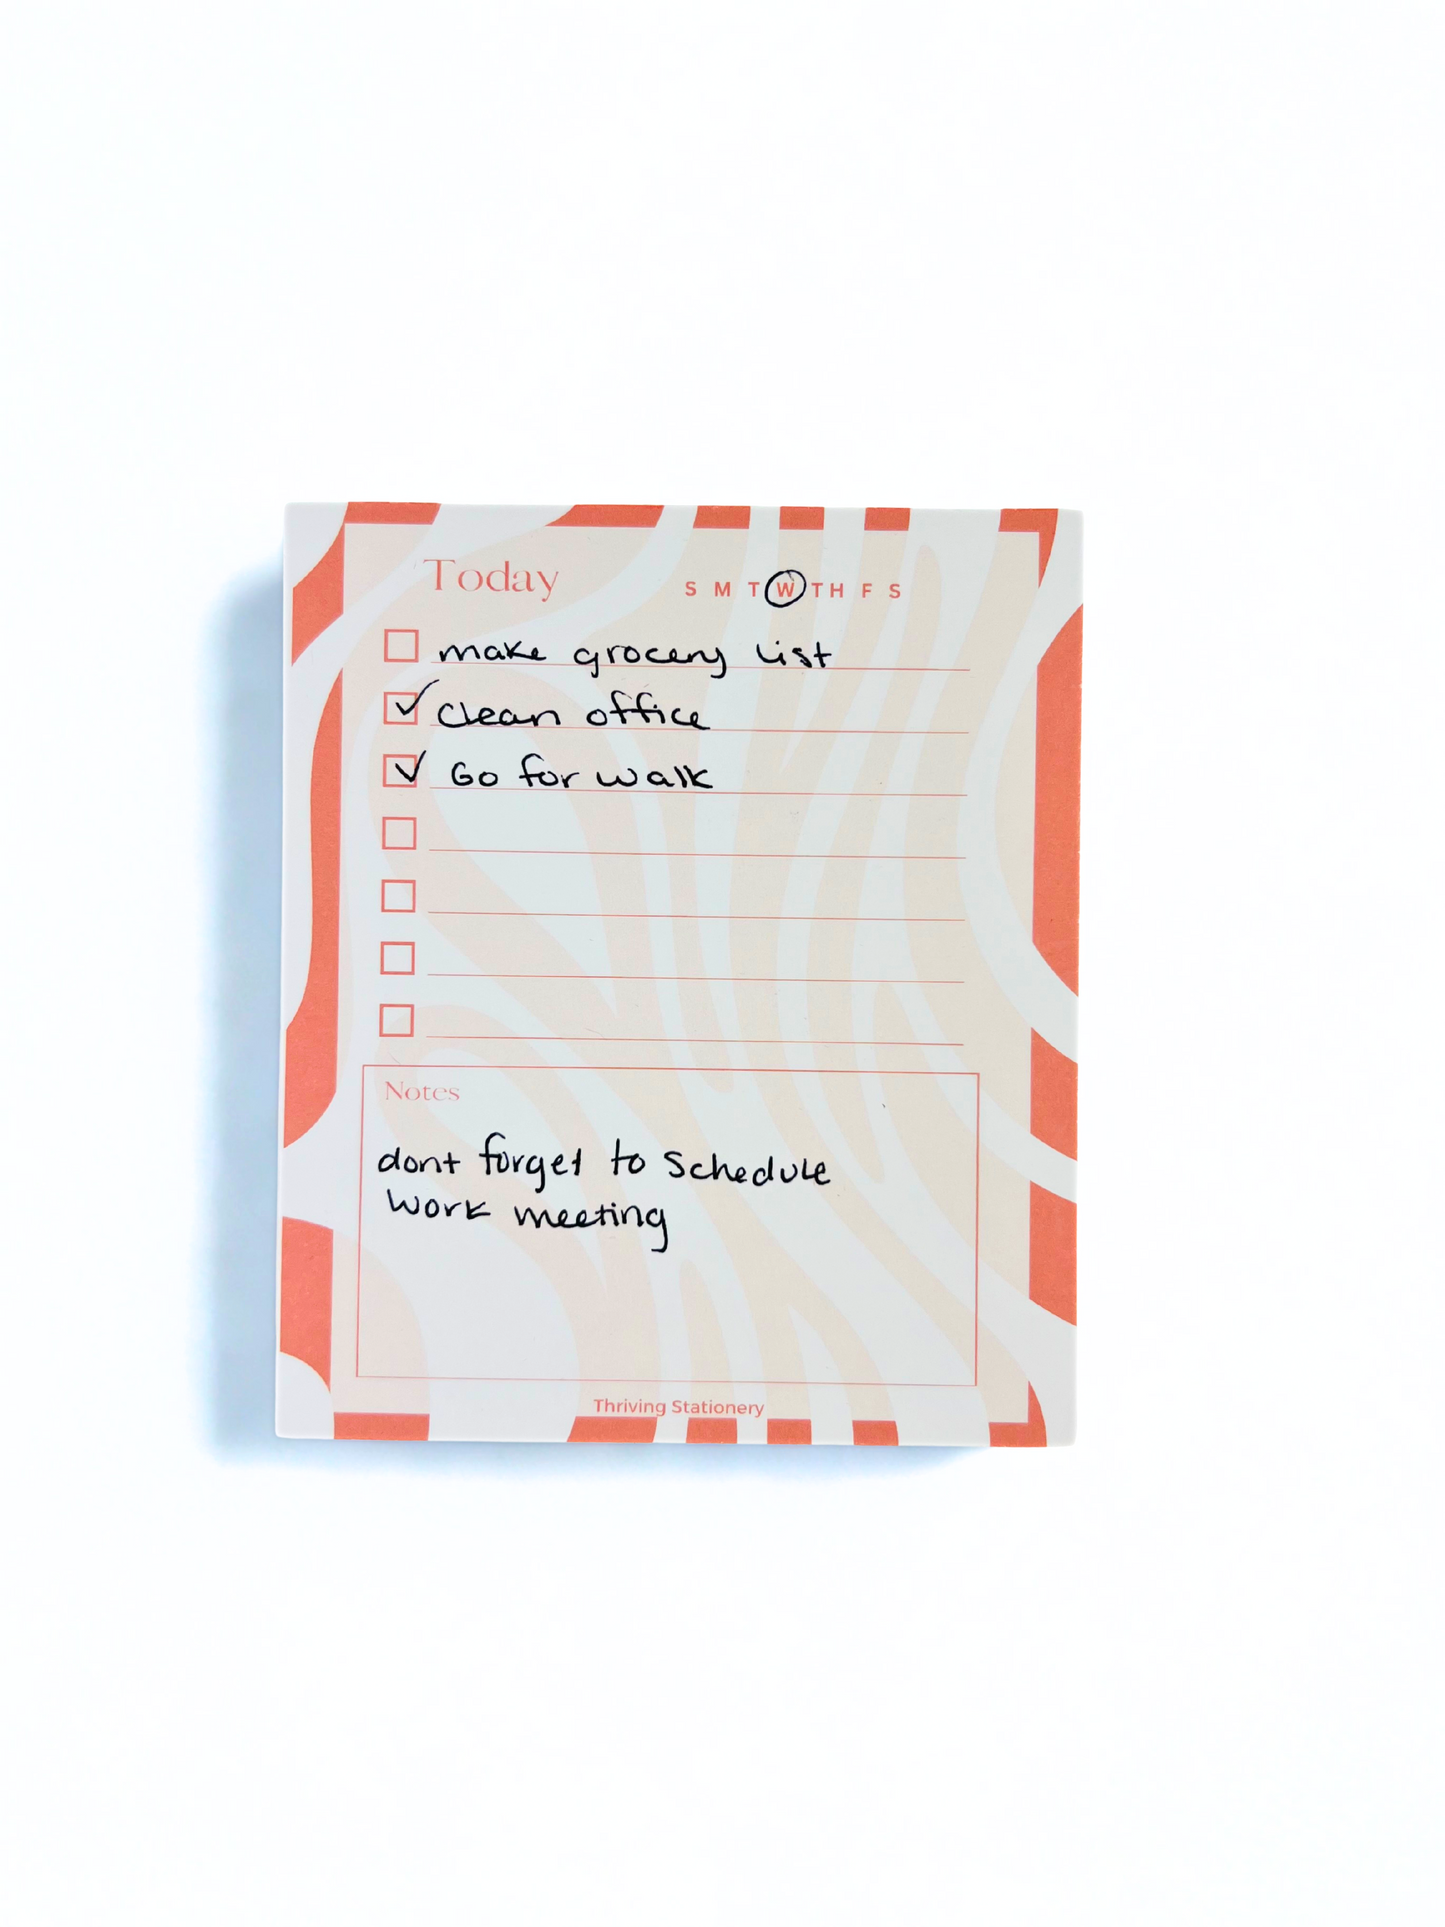 Today S M T W TH F S
make grocery list
clean office
Go for walk
Notes
dont forget to schedule
work meeting
Thriving Stationery